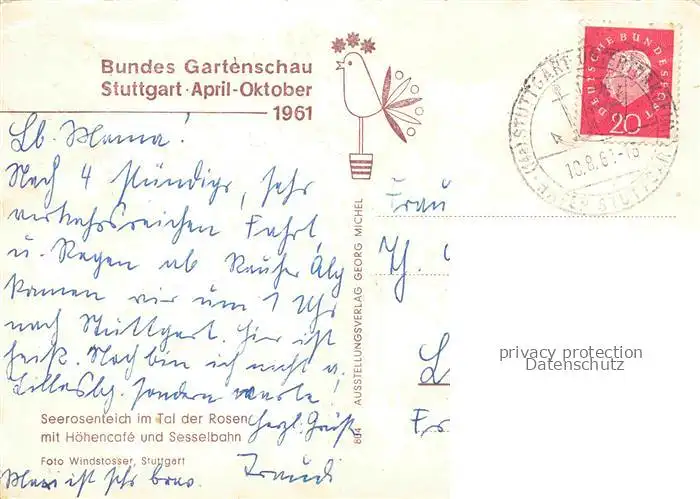 Bundes Gartenschau
Stuttgart · April-Oktober
1961
Lb. Mama!
Nach 4 stündiger, sehr
verkehrsreichen Fahrt
u. Regen ab Rauher Alp
kamen wir um 1 Uhr
nach Stuttgart. Hier ist
heiß. Noch bin ich nicht
sondern
Herzl. Grüße
Traudi
ist sehr brav.
Seerosenteich im Tal der Rosen
mit Höhencafé und Sesselbahn
Foto Windstosser, Stuttgart
804 AUSSTELLUNGSVERLAG GEORG MICHEL
Frau
DEUTSCHE BUNDESPOST
20
STUTTGART
10.8.61-16
privacy protection
Datenschutz